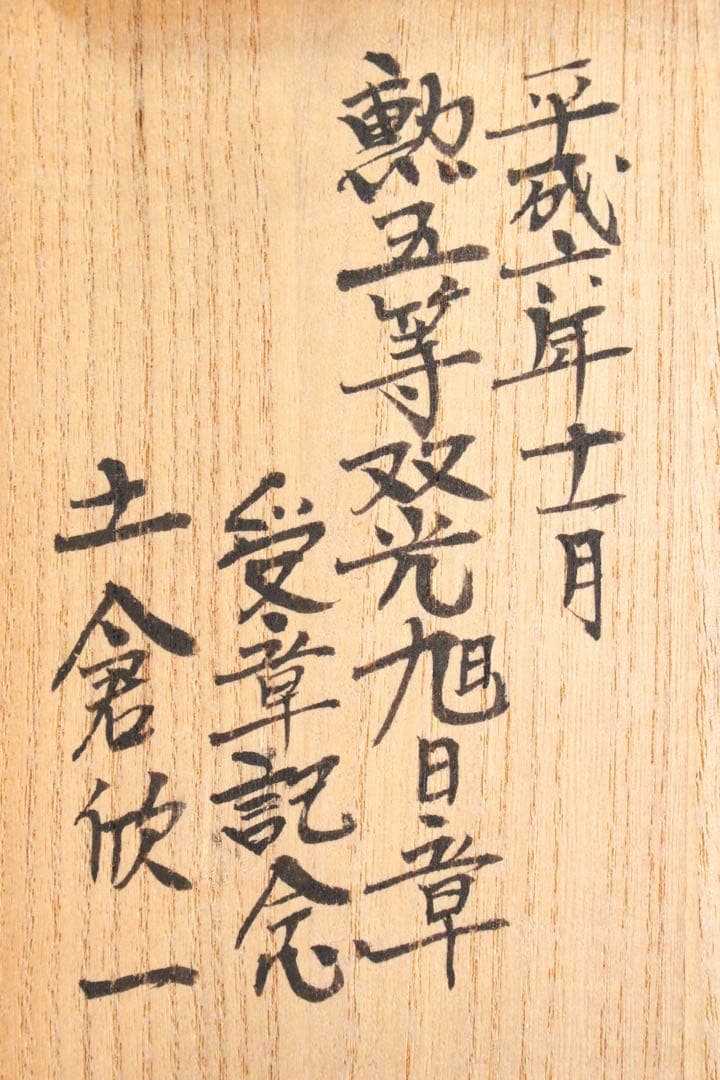 平成六年十一月
勲五等双光旭日章
受章記念
土倉欣一